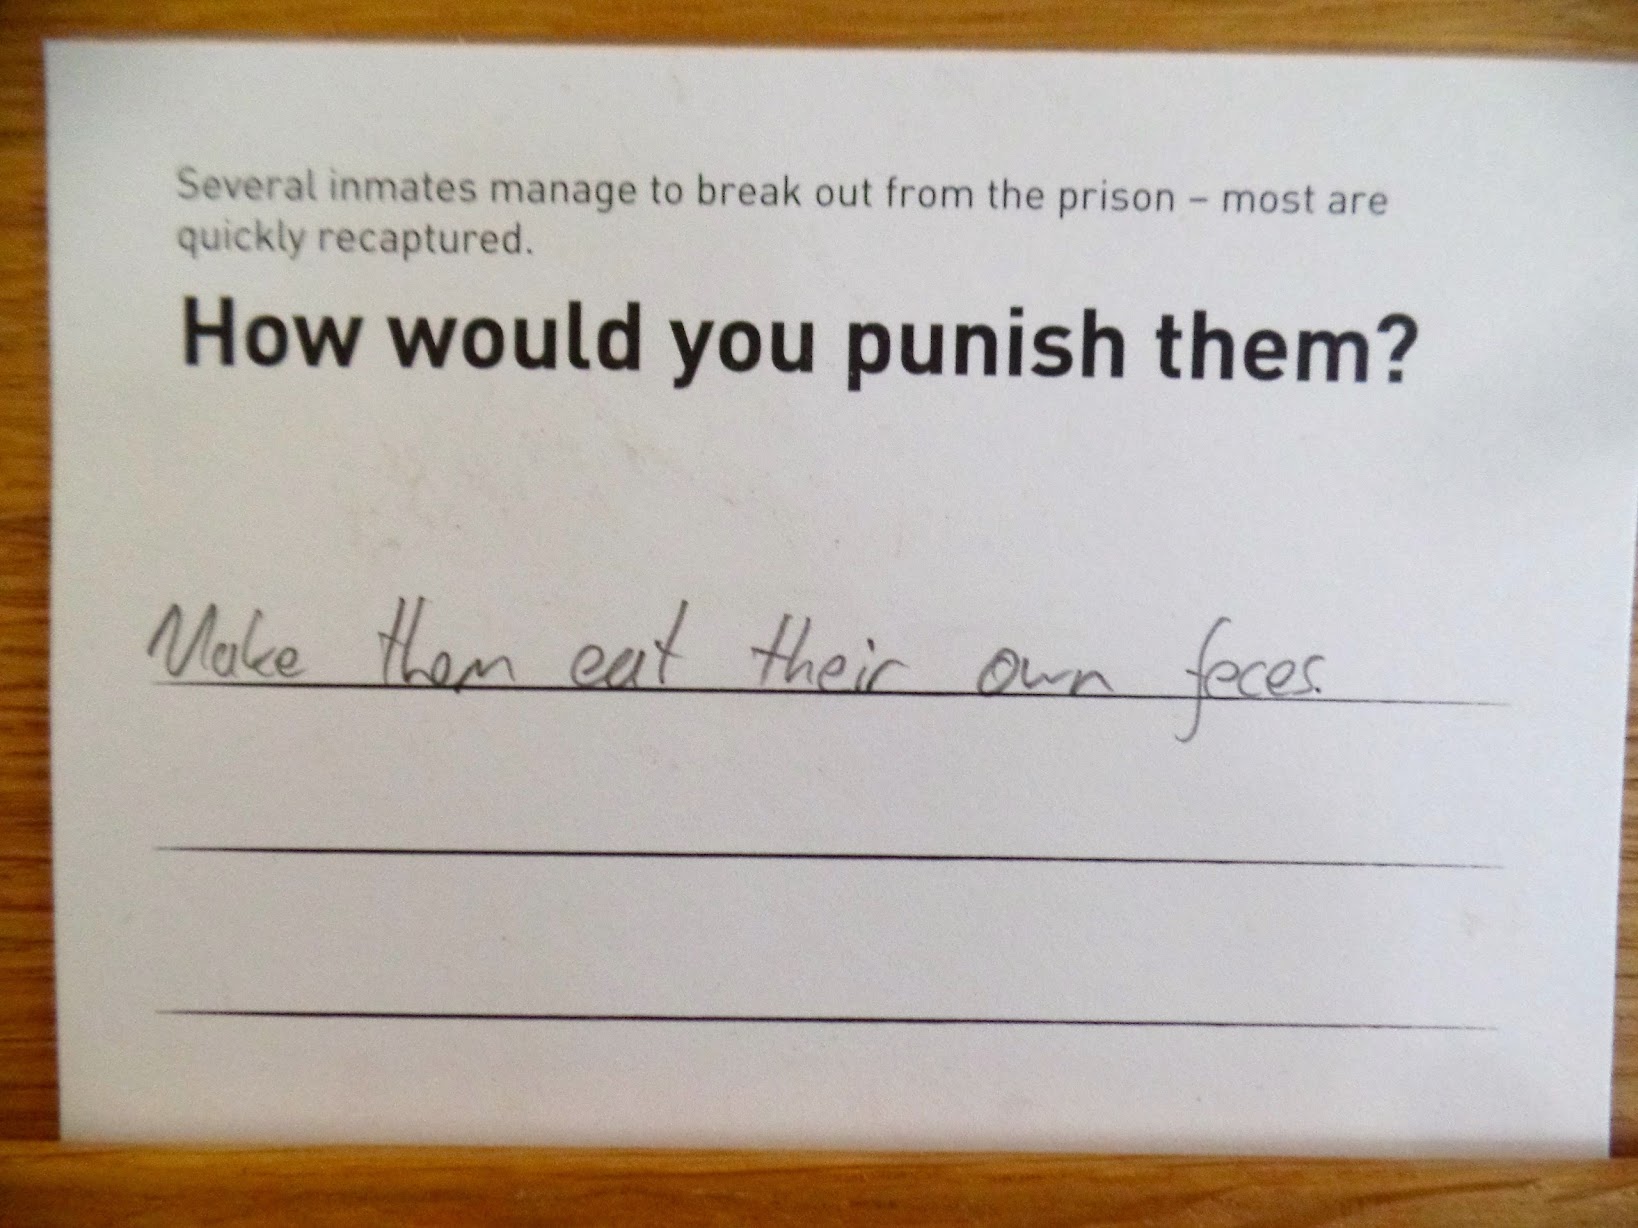 Several inmates manage to break out from the prison – most are
quickly recaptured.
How would you punish them?
Make them eat their own feces.